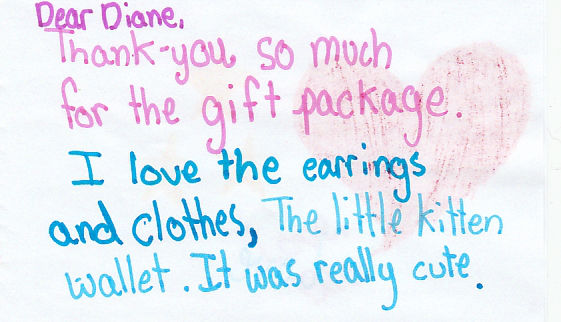 Dear Diane,
Thank-you so much
for the gift package.
I love the earrings
and clothes, The little kitten
wallet. It was really cute.